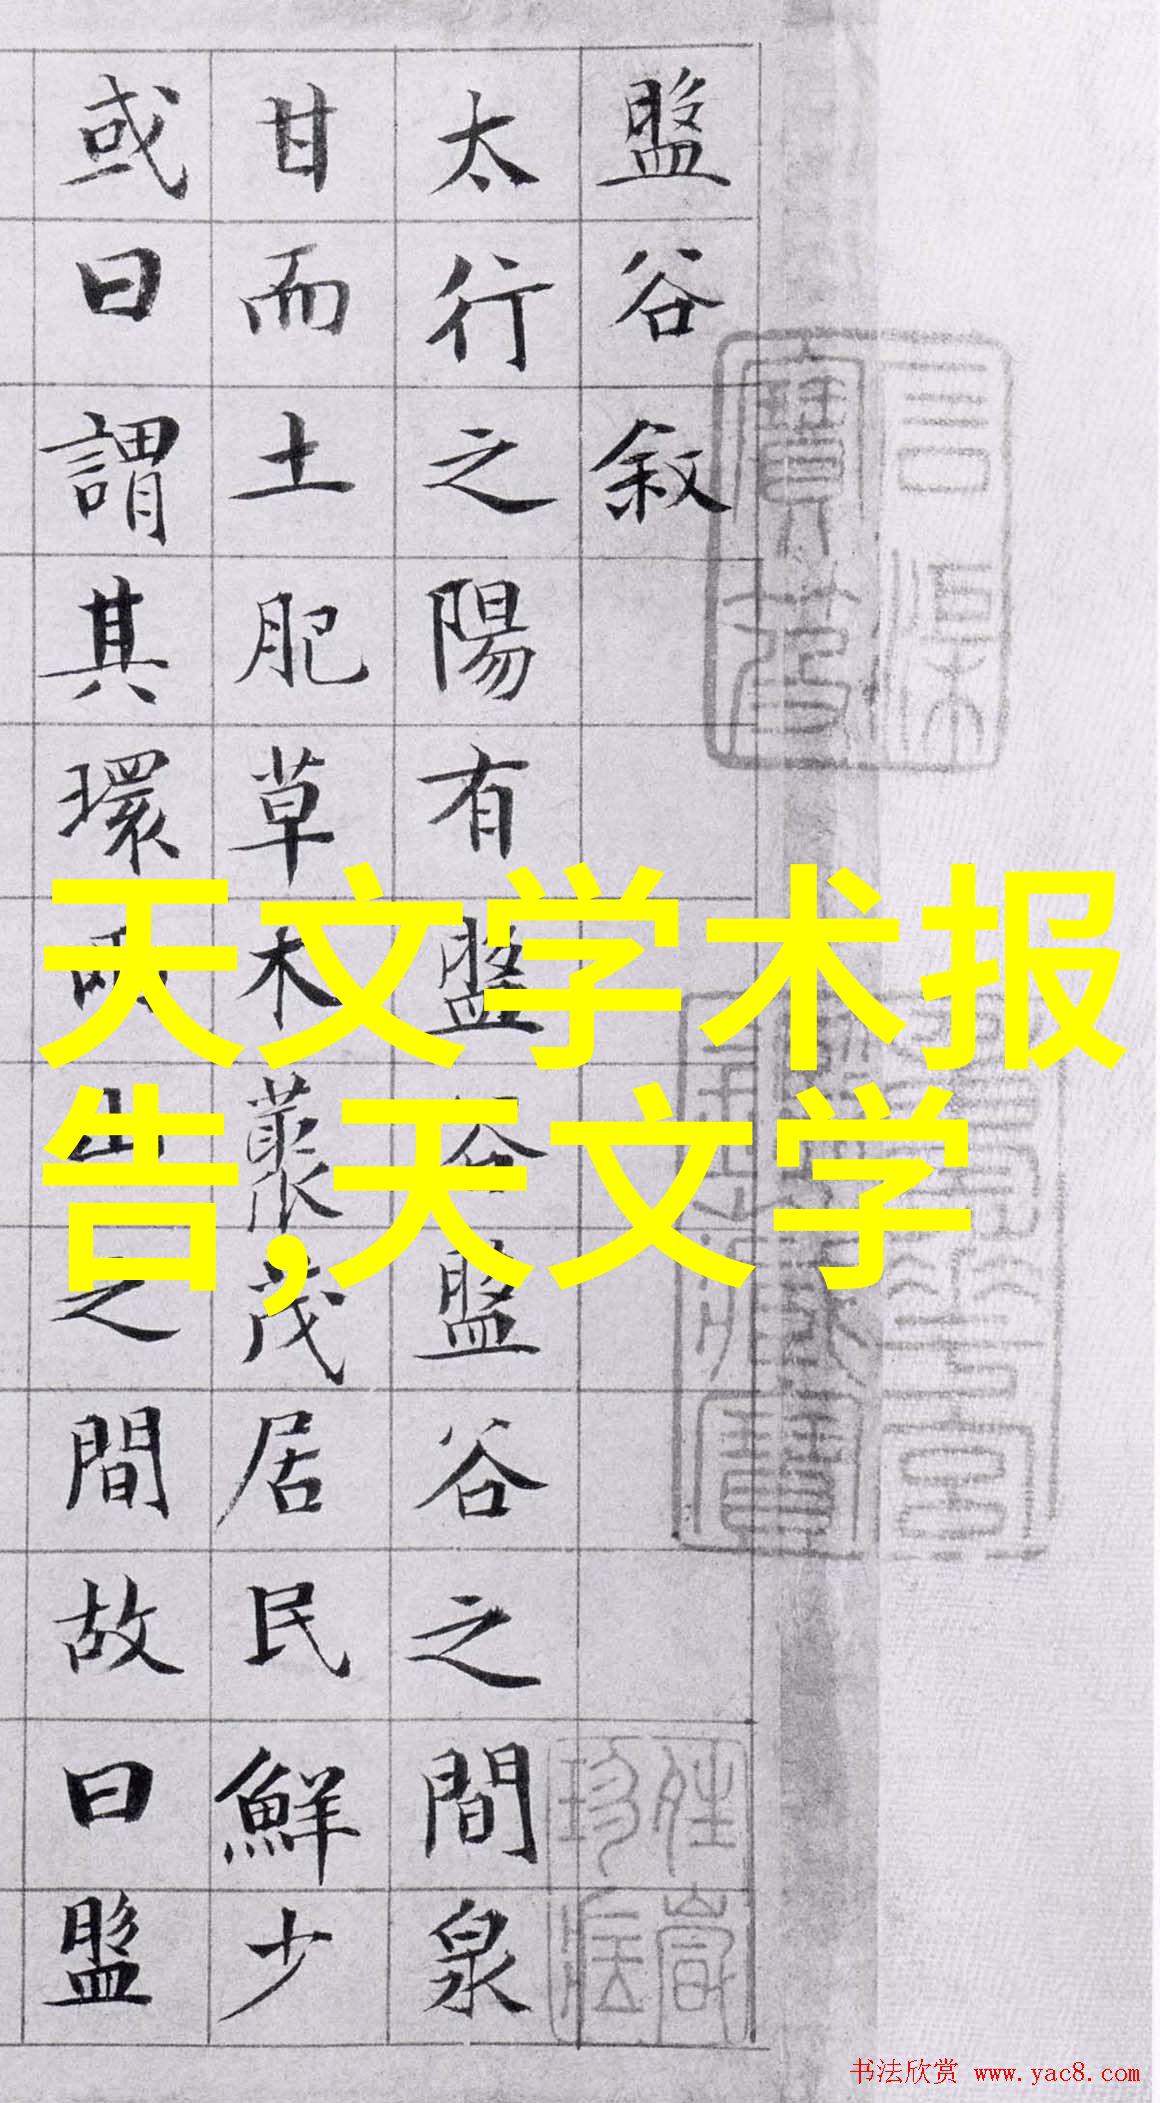 盤谷敘
太行之陽有盤谷盤谷之間泉
甘而土肥草木藂茂居民鮮少
或曰謂其環兩山之間故曰盤
天文学术报
告,天文学
书法欣赏 www.yac8.com